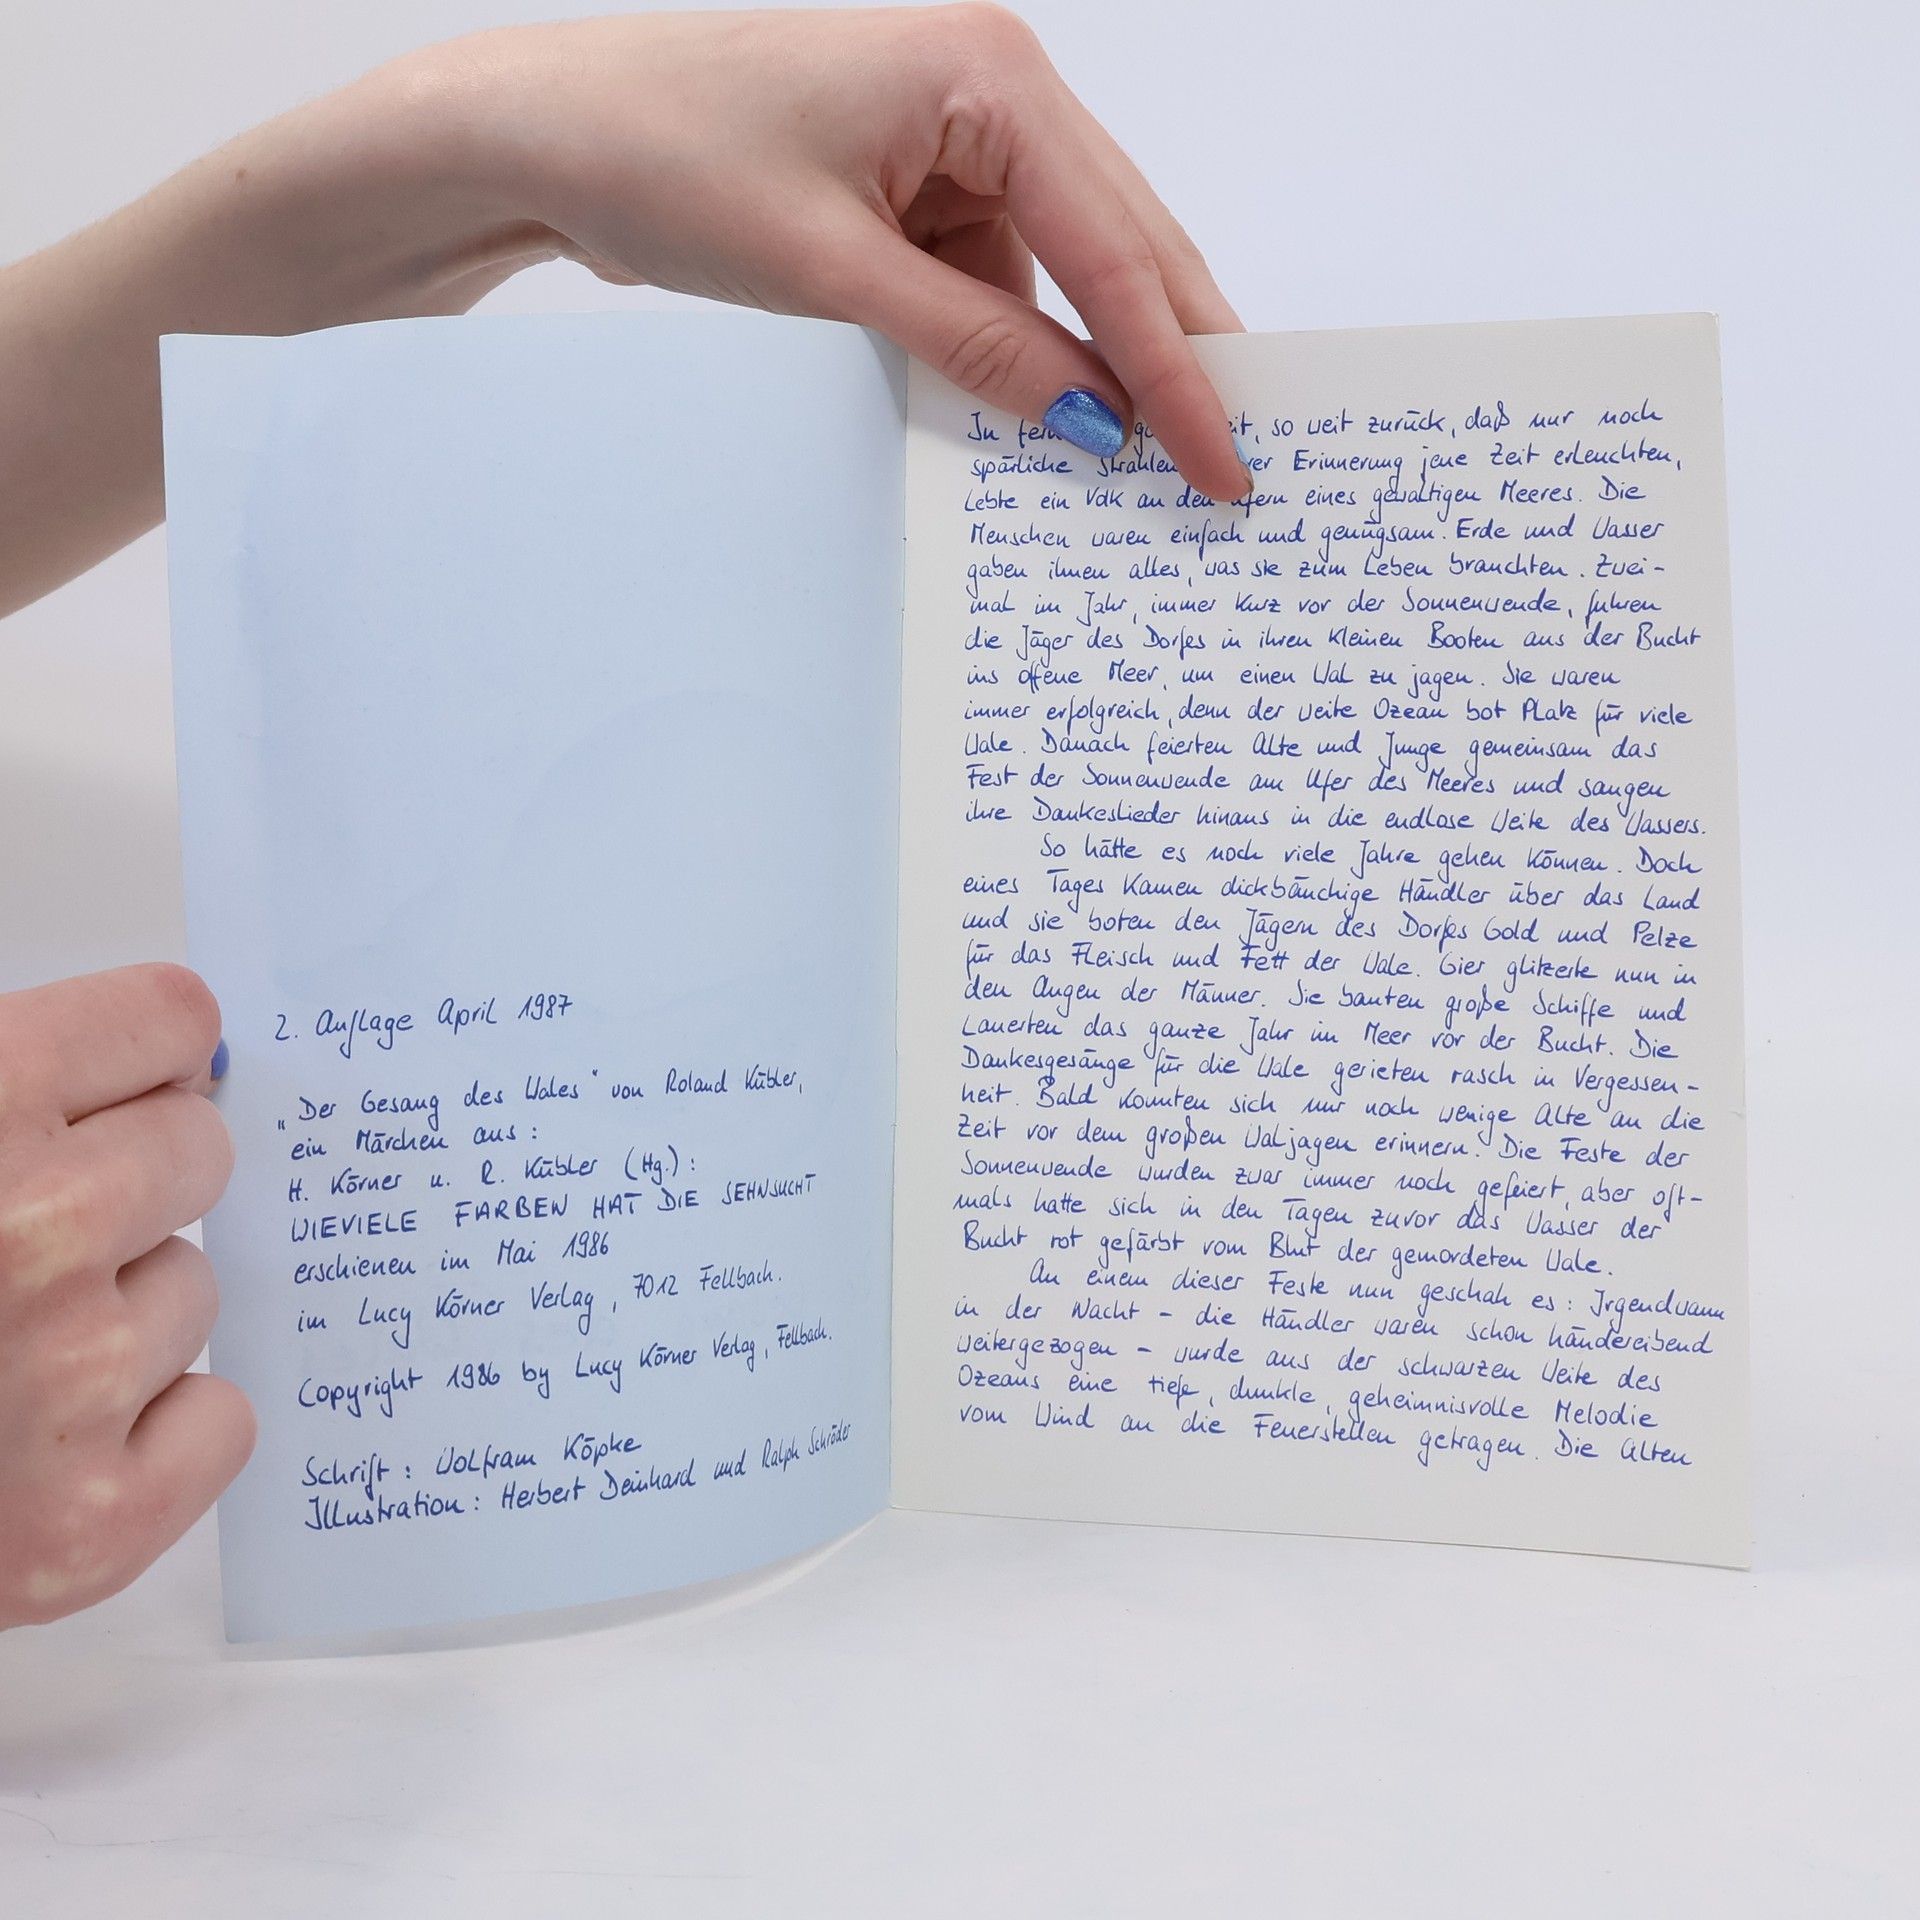 2. Auflage April 1987
„Der Gesang des Wales" von Roland Kübler,
ein Märchen aus:
H. Körner u. R. Kübler (Hg.):
WIEVIELE FARBEN HAT DIE SEHNSUCHT
erschienen im Mai 1986
im Lucy Körner Verlag, 7012 Fellbach.
Copyright 1986 by Lucy Körner Verlag, Fellbach.
Schrift: Wolfram Köpke
Illustration: Herbert Deinhard und Ralph Schröder
In so weit zurück, daß nur noch
spärliche Strahlen Erinnerung jene Zeit erleuchten,
lebte ein Volk an den Ufern eines gewaltigen Meeres. Die
Menschen waren einfach und genügsam. Erde und Wasser
gaben ihnen alles, was sie zum Leben brauchten. Zwei-
mal im Jahr, immer kurz vor der Sonnenwende, fuhren
die Jäger des Dorfes in ihren kleinen Booten aus der Bucht
ins offene Meer, um einen Wal zu jagen. Sie waren
immer erfolgreich, denn der weite Ozean bot Platz für viele
Wale. Danach feierten Alte und Junge gemeinsam das
Fest der Sonnenwende am Ufer des Meeres und sangen
ihre Dankeslieder hinaus in die endlose Weite des Wassers.
So hätte es noch viele Jahre gehen können. Doch
eines Tages kamen dickbäuchige Händler über das Land
und sie boten den Jägern des Dorfes Gold und Pelze
für das Fleisch und Fett der Wale. Gier glitzerte nun in
den Augen der Männer. Sie bauten große Schiffe und
lauerten das ganze Jahr im Meer vor der Bucht. Die
Dankesgesänge für die Wale gerieten rasch in Vergessen-
heit. Bald konnten sich nur noch wenige Alte an die
Zeit vor dem großen Waljagen erinnern. Die Feste der
Sonnenwende wurden zwar immer noch gefeiert, aber oft-
mals hatte sich in den Tagen zuvor das Wasser der
Bucht rot gefärbt vom Blut der gemordeten Wale.
An einem dieser Feste nun geschah es: Irgendwann
in der Nacht – die Händler waren schon händereibend
weitergezogen – wurde aus der schwarzen Weite des
Ozeans eine tiefe, dunkle, geheimnisvolle Melodie
vom Wind an die Feuerstellen getragen. Die Alten